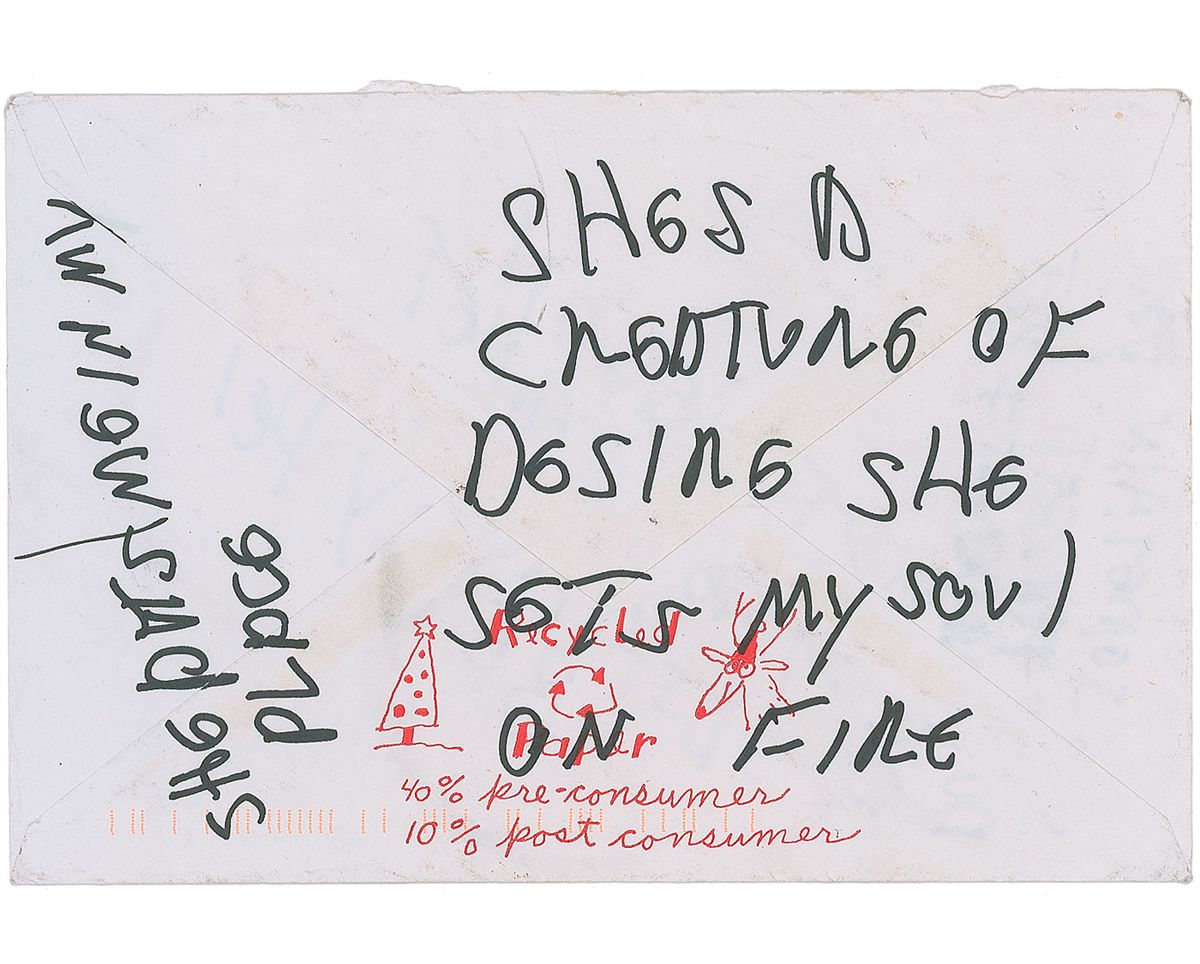 SHES A
CREATURE OF
DESIRE SHE
SETS MY SOUL
ON FIRE
SHE MY
PLACE
Recycled
Paper
40% pre-consumer
10% post consumer